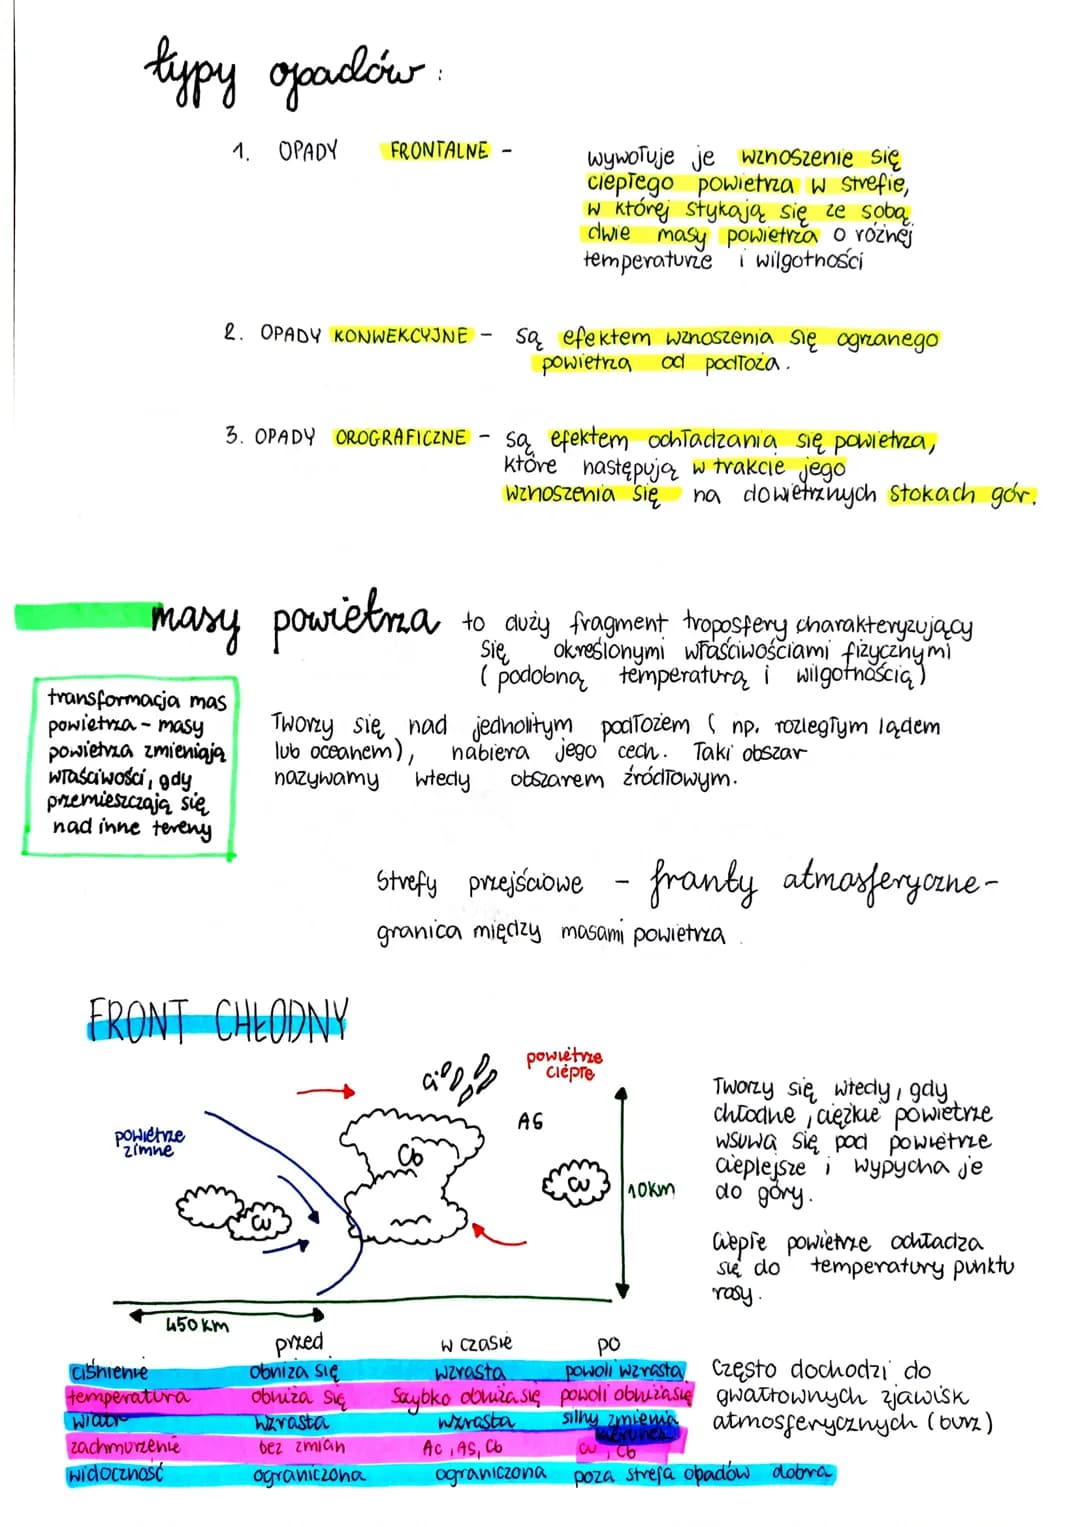 typy opadów:
1. OPADY FRONTALNE - wywołuje je wznoszenie się
ciepłego powietrza w strefie,
w której stykają się ze sobą
dwie masy powietrza o różnej
temperaturze i wilgotności
2. OPADY KONWEKCYJNE - są efektem wznoszenia się ogrzanego
powietrza od podłoża.
3. OPADY OROGRAFICZNE - są efektem ochładzania się powietrza,
które następują w trakcie jego
wznoszenia się na dowietrznych stokach gór.
masy powietrza to duży fragment troposfery charakteryzujący
się określonymi właściwościami fizycznymi
(podobną temperaturą i wilgotnością)
transformacja mas
powietrza - masy
powietrza zmieniają
właściwości, gdy
przemieszczają się
nad inne tereny
Tworzy się nad jednolitym podłożem (np. rozległym lądem
lub oceanem), nabiera jego cech. Taki obszar
nazywamy wtedy obszarem źródłowym.
Strefy przejściowe - fronty atmosferyczne -
granica między masami powietrza
FRONT CHŁODNY
powietrze
ciepłe
Ci
powietrze
zimne
Cb
Cu
Cu
10km
450 km
Tworzy się wtedy, gdy
chłodne, ciężkie powietrze
wsuwa się pod powietrze
cieplejsze i wypycha je
do góry.
Ciepłe powietrze ochładza
się do temperatury punktu
rosy.
Często dochodzi do
gwałtownych zjawisk
atmosferycznych (burz)
przed w czasie po
ciśnienie obniża się wzrasta powoli wzrasta
temperatura obniża się Szybko obniża się powoli obniża się
wiatr wzrasta wzrasta silny zmienia
kierunek
zachmurzenie bez zmian Ac, As, Cb Cu, Cb
widoczność ograniczona ograniczona poza strefą opadów dobra